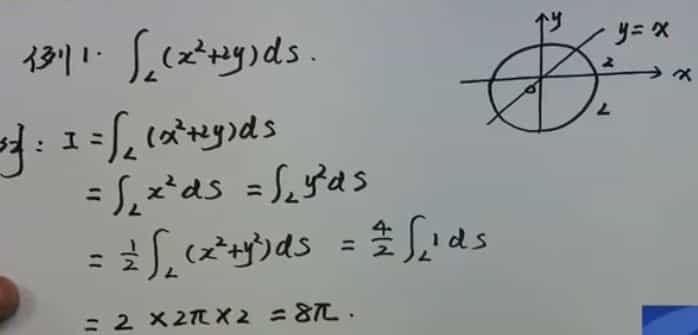 例1. ∫_L (x²+2y)ds.
y
y=x
2
x
O
L
解: I = ∫_L (x²+2y)ds
= ∫_L x²ds = ∫_L y²ds
= 1/2 ∫_L (x²+y²)ds = 4/2 ∫_L 1 ds
= 2 × 2π × 2 = 8π.